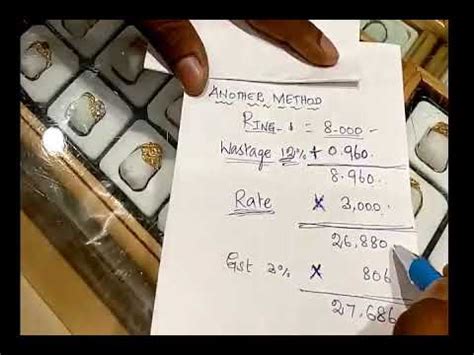 ANOTHER METHOD
RING - 1 = 8.000 -
Wastage 12% + 0.960.
8.960
Rate X 3,000.
26,880
Gst 3% X 806
27,686